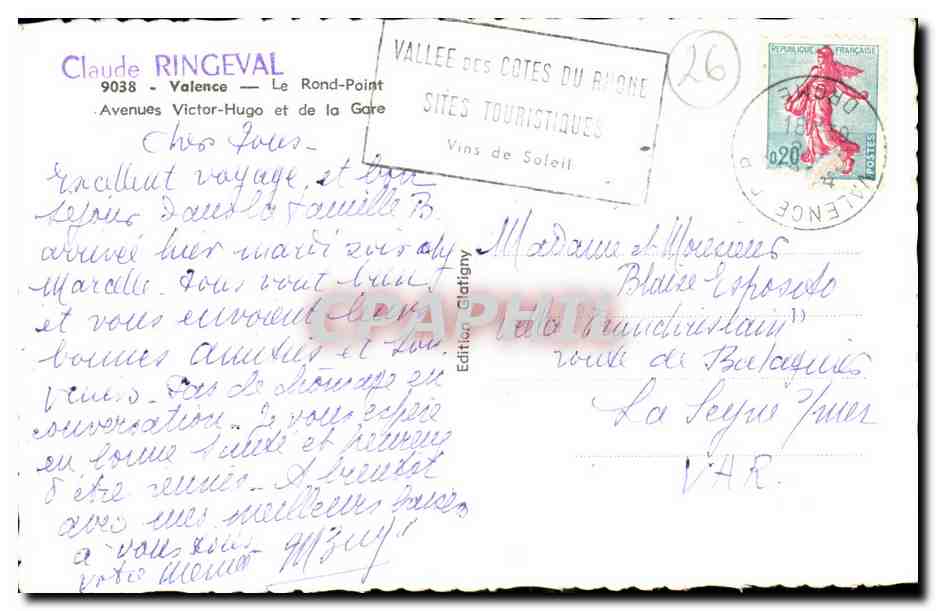 Claude RINGEVAL
9038 - Valence — Le Rond-Point
Avenues Victor-Hugo et de la Gare
VALLEE DES COTES DU RHONE
SITES TOURISTIQUES
Vins de Soleil
26
REPUBLIQUE FRANÇAISE
0,20
POSTES
VALENCE
DROME
Chers Tous -
Excellent voyage, et bon
séjour dans la famille B.
arrivée hier mardi soir
Marcelle. Tous vont bien
et vous envoient leurs
bonnes amitiés et sou
venirs. Pas de chômage en
conversation. Je vous espère
en bonne santé et heureux
d'être réunis. A bientôt
avec mes meilleurs baisers
à vous tous
votre
Edition Glatigny
Madame et Messieurs
Blaise Esposito
Villa
route de Balaguier
La Seyne s/mer
VAR.
CPARHIL